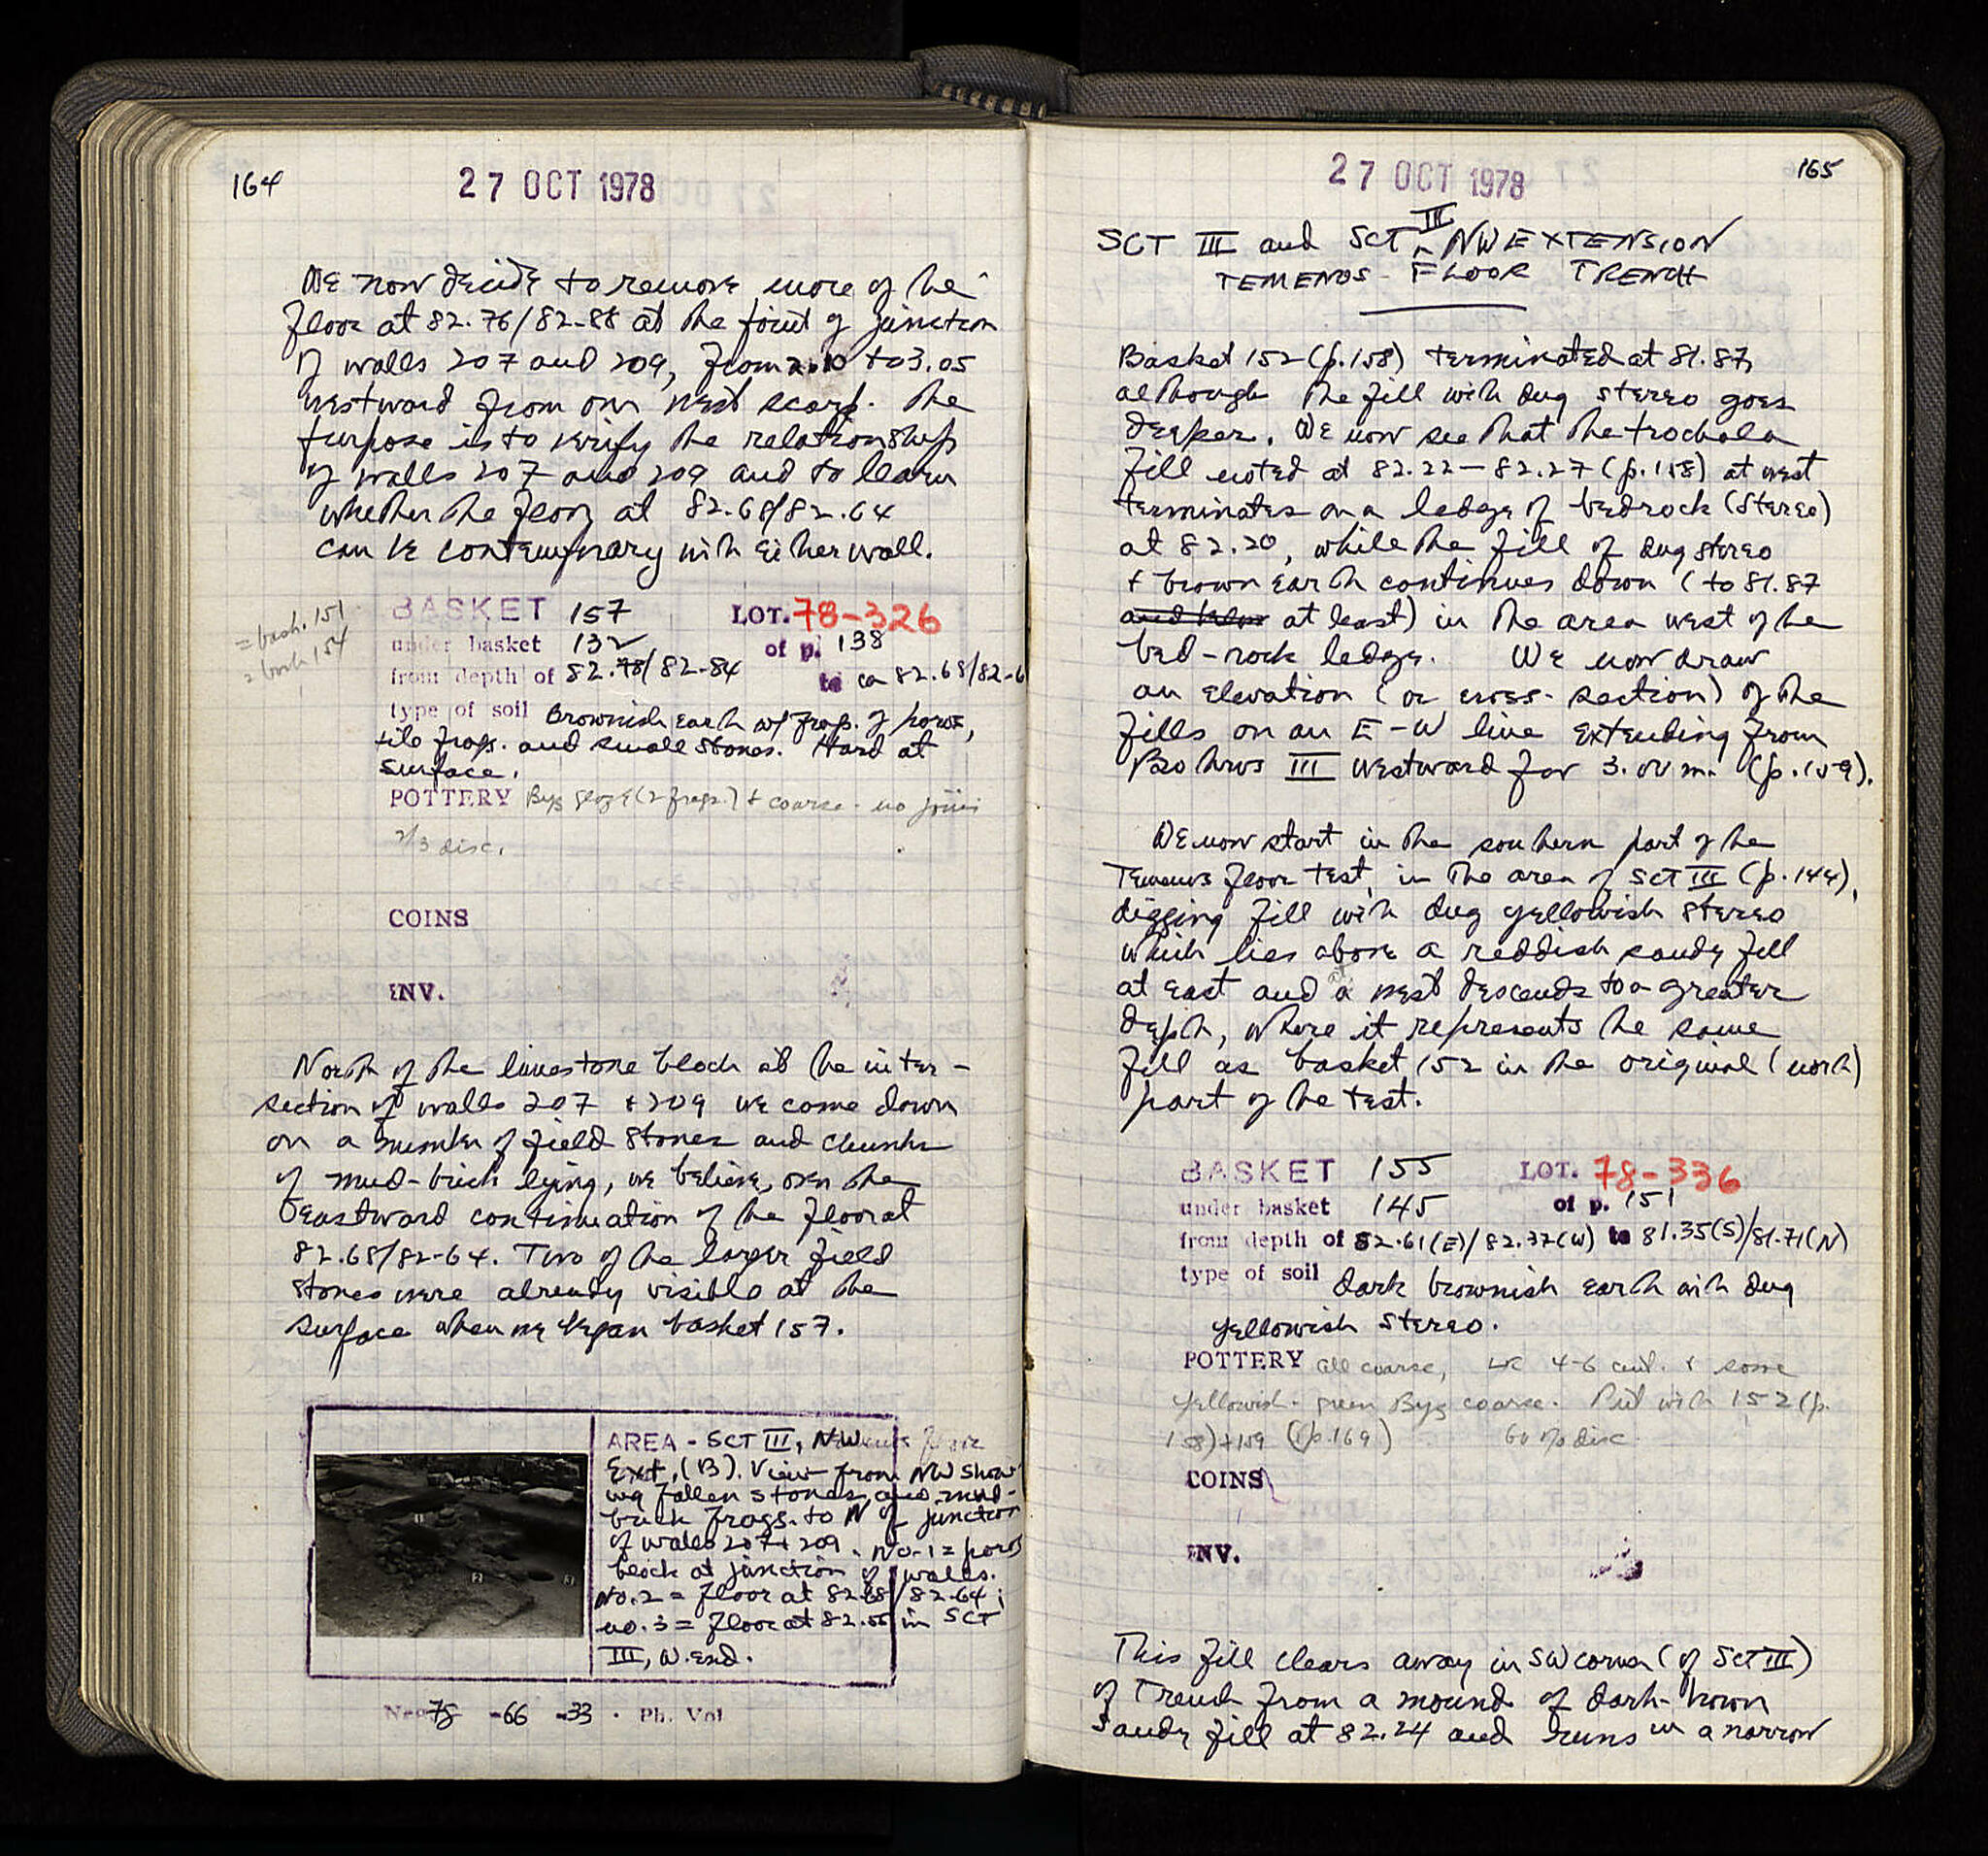 164
27 OCT 1978
We now decide to remove more of the
floor at 82.76/82.88 at the point of junction
of walls 207 and 209, from 2.10 to 3.05
westward from our west scarp. The
purpose is to verify the relationship
of walls 207 and 209 and to learn
whether the floor at 82.68/82.64
can be contemporary with either wall.
= bask. 151
= bask 154
BASKET 157 LOT. 78-326
under basket 132 of p. 138
from depth of 82.78/82.84 to ca 82.68/82.6
type of soil Brownish earth w/ frags. of poros,
tile frags. and small stones. Hard at
surface.
POTTERY Byz glaze (2 frags.) + coarse - no joins
2/3 disc.
COINS
INV.
North of the limestone block at the inter-
section of walls 207 + 209 we come down
on a number of field stones and chunks
of mud-brick lying, we believe, over the
eastward continuation of the floor at
82.68/82.64. Two of the larger field
stones were already visible at the
surface when we began basket 157.
AREA - SCT III, NW
Ext. (B). View from NW show-
ing fallen stones and mud-
brick frags. to N of junction
of walls 207 + 209. No. 1 = poros
block at junction of walls.
No. 2 = floor at 82.68/82.64;
no. 3 = floor at 82.55 in SCT
III, W. end.
Neg. 78 -66 -33 . Ph. Vol
165
27 OCT 1978
SCT III and SCT III NW EXTENSION
TEMENOS FLOOR TRENCH
Basket 152 (p. 158) terminated at 81.87,
although the fill with dug stereo goes
deeper. We now see that the trochala
fill noted at 82.22 - 82.27 (p. 158) at west
terminates on a ledge of bedrock (stereo)
at 82.20, while the fill of dug stereo
+ brown earth continues down (to 81.87
at least) in the area west of the
bed-rock ledge. We now draw
an elevation (or cross-section) of the
fills on an E-W line extending from
Bothros III westward for 3.00 m. (p. 159).
We now start in the southern part of the
Temenos floor test, in the area of SCT III (p. 144),
digging fill with dug yellowish stereo
which lies above a reddish sandy fill
at east and at west descends to a greater
depth, where it represents the same
fill as basket 152 in the original (north)
part of the test.
BASKET 155 LOT. 78-336
under basket 145 of p. 151
from depth of 82.61(E)/82.37(W) to 81.35(S)/81.71(N)
type of soil dark brownish earth with dug
yellowish stereo.
POTTERY all coarse, LR 4-6 cent. & some
yellowish-green Byz coarse. Put with 152 (p.
158) + 159 (p. 169) 60% disc.
COINS
INV.
This fill clears away in SW corner (of SCT III)
of Trench from a mound of dark-brown
sandy fill at 82.24 and runs in a narrow